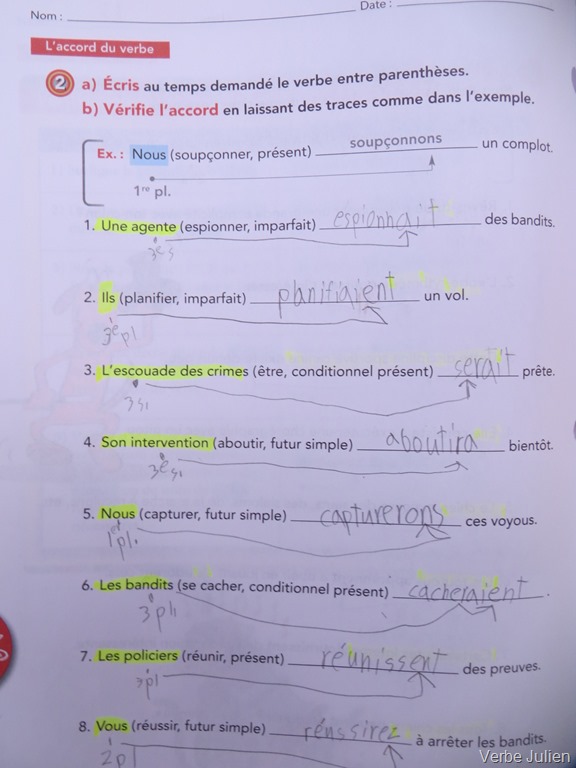 Nom : Date :
L'accord du verbe
2 a) Écris au temps demandé le verbe entre parenthèses.
b) Vérifie l'accord en laissant des traces comme dans l'exemple.
Ex. : Nous (soupçonner, présent) soupçonnons un complot.
1re pl.
1. Une agente (espionner, imparfait) espionnait des bandits.
3e s
2. Ils (planifier, imparfait) planifiaient un vol.
3e pl
3. L'escouade des crimes (être, conditionnel présent) serait prête.
3 s.
4. Son intervention (aboutir, futur simple) aboutira bientôt.
3e s.
5. Nous (capturer, futur simple) capturerons ces voyous.
1er pl.
6. Les bandits (se cacher, conditionnel présent) cacheraient.
3 pl
7. Les policiers (réunir, présent) réunissent des preuves.
3pl
8. Vous (réussir, futur simple) réussirez à arrêter les bandits.
2pl
Verbe Julien